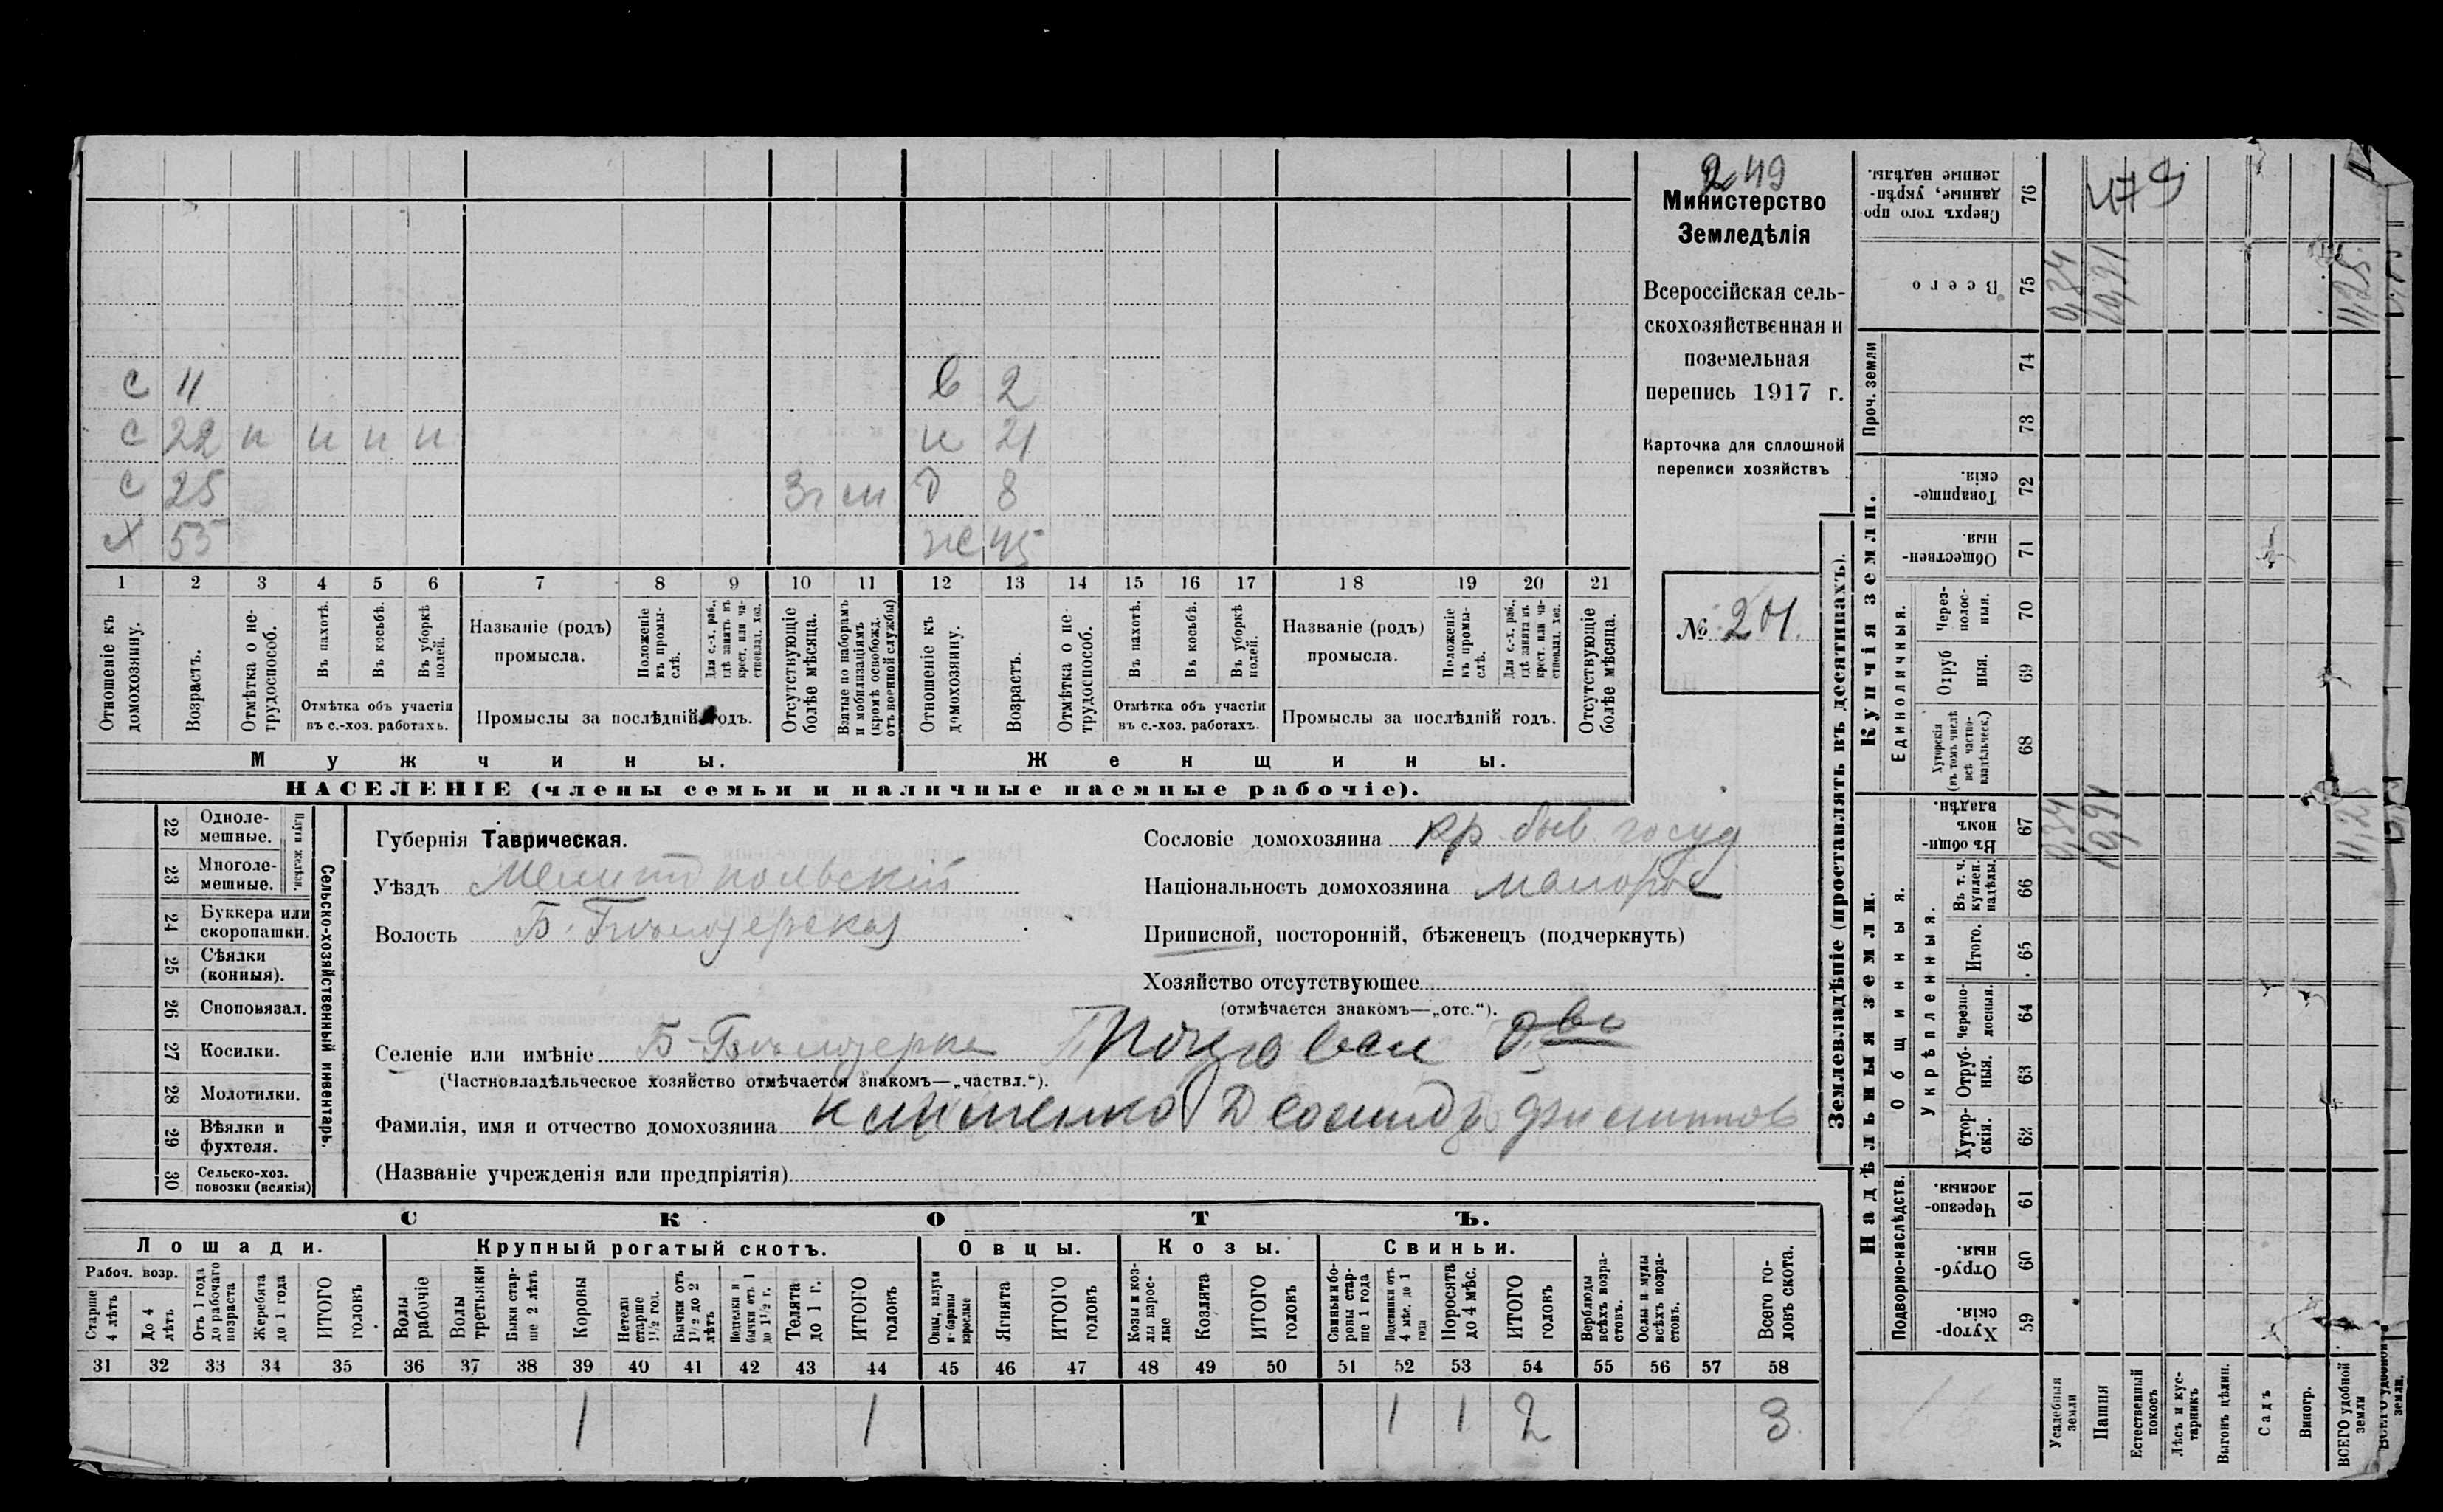 249
Министерство
Земледѣлія
Всероссійская сель-
скохозяйственная и
поземельная
перепись 1917 г.
Карточка для сплошной
переписи хозяйствъ
№ 24.
С 11 в 2
С 22 н н н н н 21
С 25 3 г м д 8
Х 55 ж 45
1 2 3 4 5 6 7 8 9 10 11 12 13 14 15 16 17 18 19 20 21
Отношеніе къ домохозяину.
Возрастъ.
Отмѣтка о не-трудоспособ.
Въ пахотѣ.
Въ косьбѣ.
Въ уборкѣ полей.
Отмѣтка объ участіи
въ с.-хоз. работахъ.
Названіе (родъ)
промысла.
Положеніе въ промы-слѣ.
Для с.-х. раб., гдѣ занятъ въ крест. или ча-стновлад. хоз.
Промыслы за послѣдній годъ.
Отсутствующіе болѣе мѣсяца.
Взятые по наборамъ и мобилизаціямъ (кромѣ освобожд. отъ военной службы)
Отношеніе къ домохозяину.
Возрастъ.
Отмѣтка о не-трудоспособ.
Въ пахотѣ.
Въ косьбѣ.
Въ уборкѣ полей.
Отмѣтка объ участіи
въ с.-хоз. работахъ.
Названіе (родъ)
промысла.
Положеніе въ промы-слѣ.
Для с.-х. раб., гдѣ занята въ крест. или ча-стновлад. хоз.
Промыслы за послѣдній годъ.
Отсутствующіе болѣе мѣсяца.
Мужчины. Женщины.
НАСЕЛЕНІЕ (члены семьи и наличные наемные рабочіе).
Сельско-хозяйственный инвентарь.
Плуги желѣзн.
22 Одноле-мешные.
23 Многоле-мешные.
24 Буккера или скоропашки.
25 Сѣялки (конныя).
26 Сноповязал.
27 Косилки.
28 Молотилки.
29 Вѣялки и фухтеля.
30 Сельско-хоз. повозки (всякія)
Губернія Таврическая.
Уѣздъ Мелитопольскій
Волость Б. Бѣлозерская
Сословіе домохозяина кр. быв. госуд
Національность домохозяина малорос
Приписной, посторонній, бѣженецъ (подчеркнуть)
Хозяйство отсутствующее
(отмѣчается знакомъ—„отс.“).
Селеніе или имѣніе Б-Бѣлозерка
(Частновладѣльческое хозяйство отмѣчается знакомъ—„частвл.“).
Фамилія, имя и отчество домохозяина Клименко Леонидъ Филиппов
(Названіе учрежденія или предпріятія)
СКОТЪ.
Лошади. Крупный рогатый скотъ. Овцы. Козы. Свиньи.
Рабоч. возр.
Старше 4 лѣтъ
До 4 лѣтъ
Отъ 1 года до рабочаго возраста
Жеребята до 1 года
ИТОГО головъ
Волы рабочіе
Волы третьяки
Быки стар-ше 2 лѣтъ
Коровы
Нетели старше 1½ год.
Бычки отъ 1½ до 2 лѣтъ
Подтелки и бычки отъ 1 до 1½ г.
Телята до 1 г.
ИТОГО головъ
Овцы, валухи и бараны взрослые
Ягнята
ИТОГО головъ
Козы и коз-лы взрос-лые
Козлята
ИТОГО головъ
Свиньи и бо-ровы стар-ше 1 года
Подсвинки отъ 4 мѣс. до 1 года
Поросята до 4 мѣс.
ИТОГО головъ
Верблюды всѣхъ возра-стовъ.
Ослы и мулы всѣхъ возра-стовъ.
Всего го-ловъ скота.
31 32 33 34 35 36 37 38 39 40 41 42 43 44 45 46 47 48 49 50 51 52 53 54 55 56 57 58
1 1 1 1 2 3
Землевладѣніе (проставлять въ десятинахъ).
Надѣльныя земли. Купчія земли.
Подворно-наслѣдств.
Общинныя.
Укрѣпленныя.
Единоличныя.
Проч. земли
Сверхъ того про-данные, укрѣп-ленные надѣлы. 76
Всего 75
74
73
Товарище-скія. 72
Обществен-ныя. 71
Через-полос-ныя. 70
Отруб ныя. 69
Хуторскія (въ томъ числѣ всѣ частно-владѣльческ.) 68
Въ общин-номъ владѣн. 67
Въ т. ч. куплен. надѣлы. 66
Итого. 65
Черезпо-лосныя. 64
Отруб-ныя. 63
Хутор-скія. 62
Черезпо-лосныя. 61
Отруб-ныя. 60
Хутор-скія. 59
479
0,34 10,91 11,25
0,34 10,91 11,25
Усадебныя земли
Пашня
Естественный покосъ
Лѣсъ и кус-тарникъ
Выгонъ цѣлин.
Садъ
Виногр.
ВСЕГО удобной земли
ВСЕГО удобной земли.